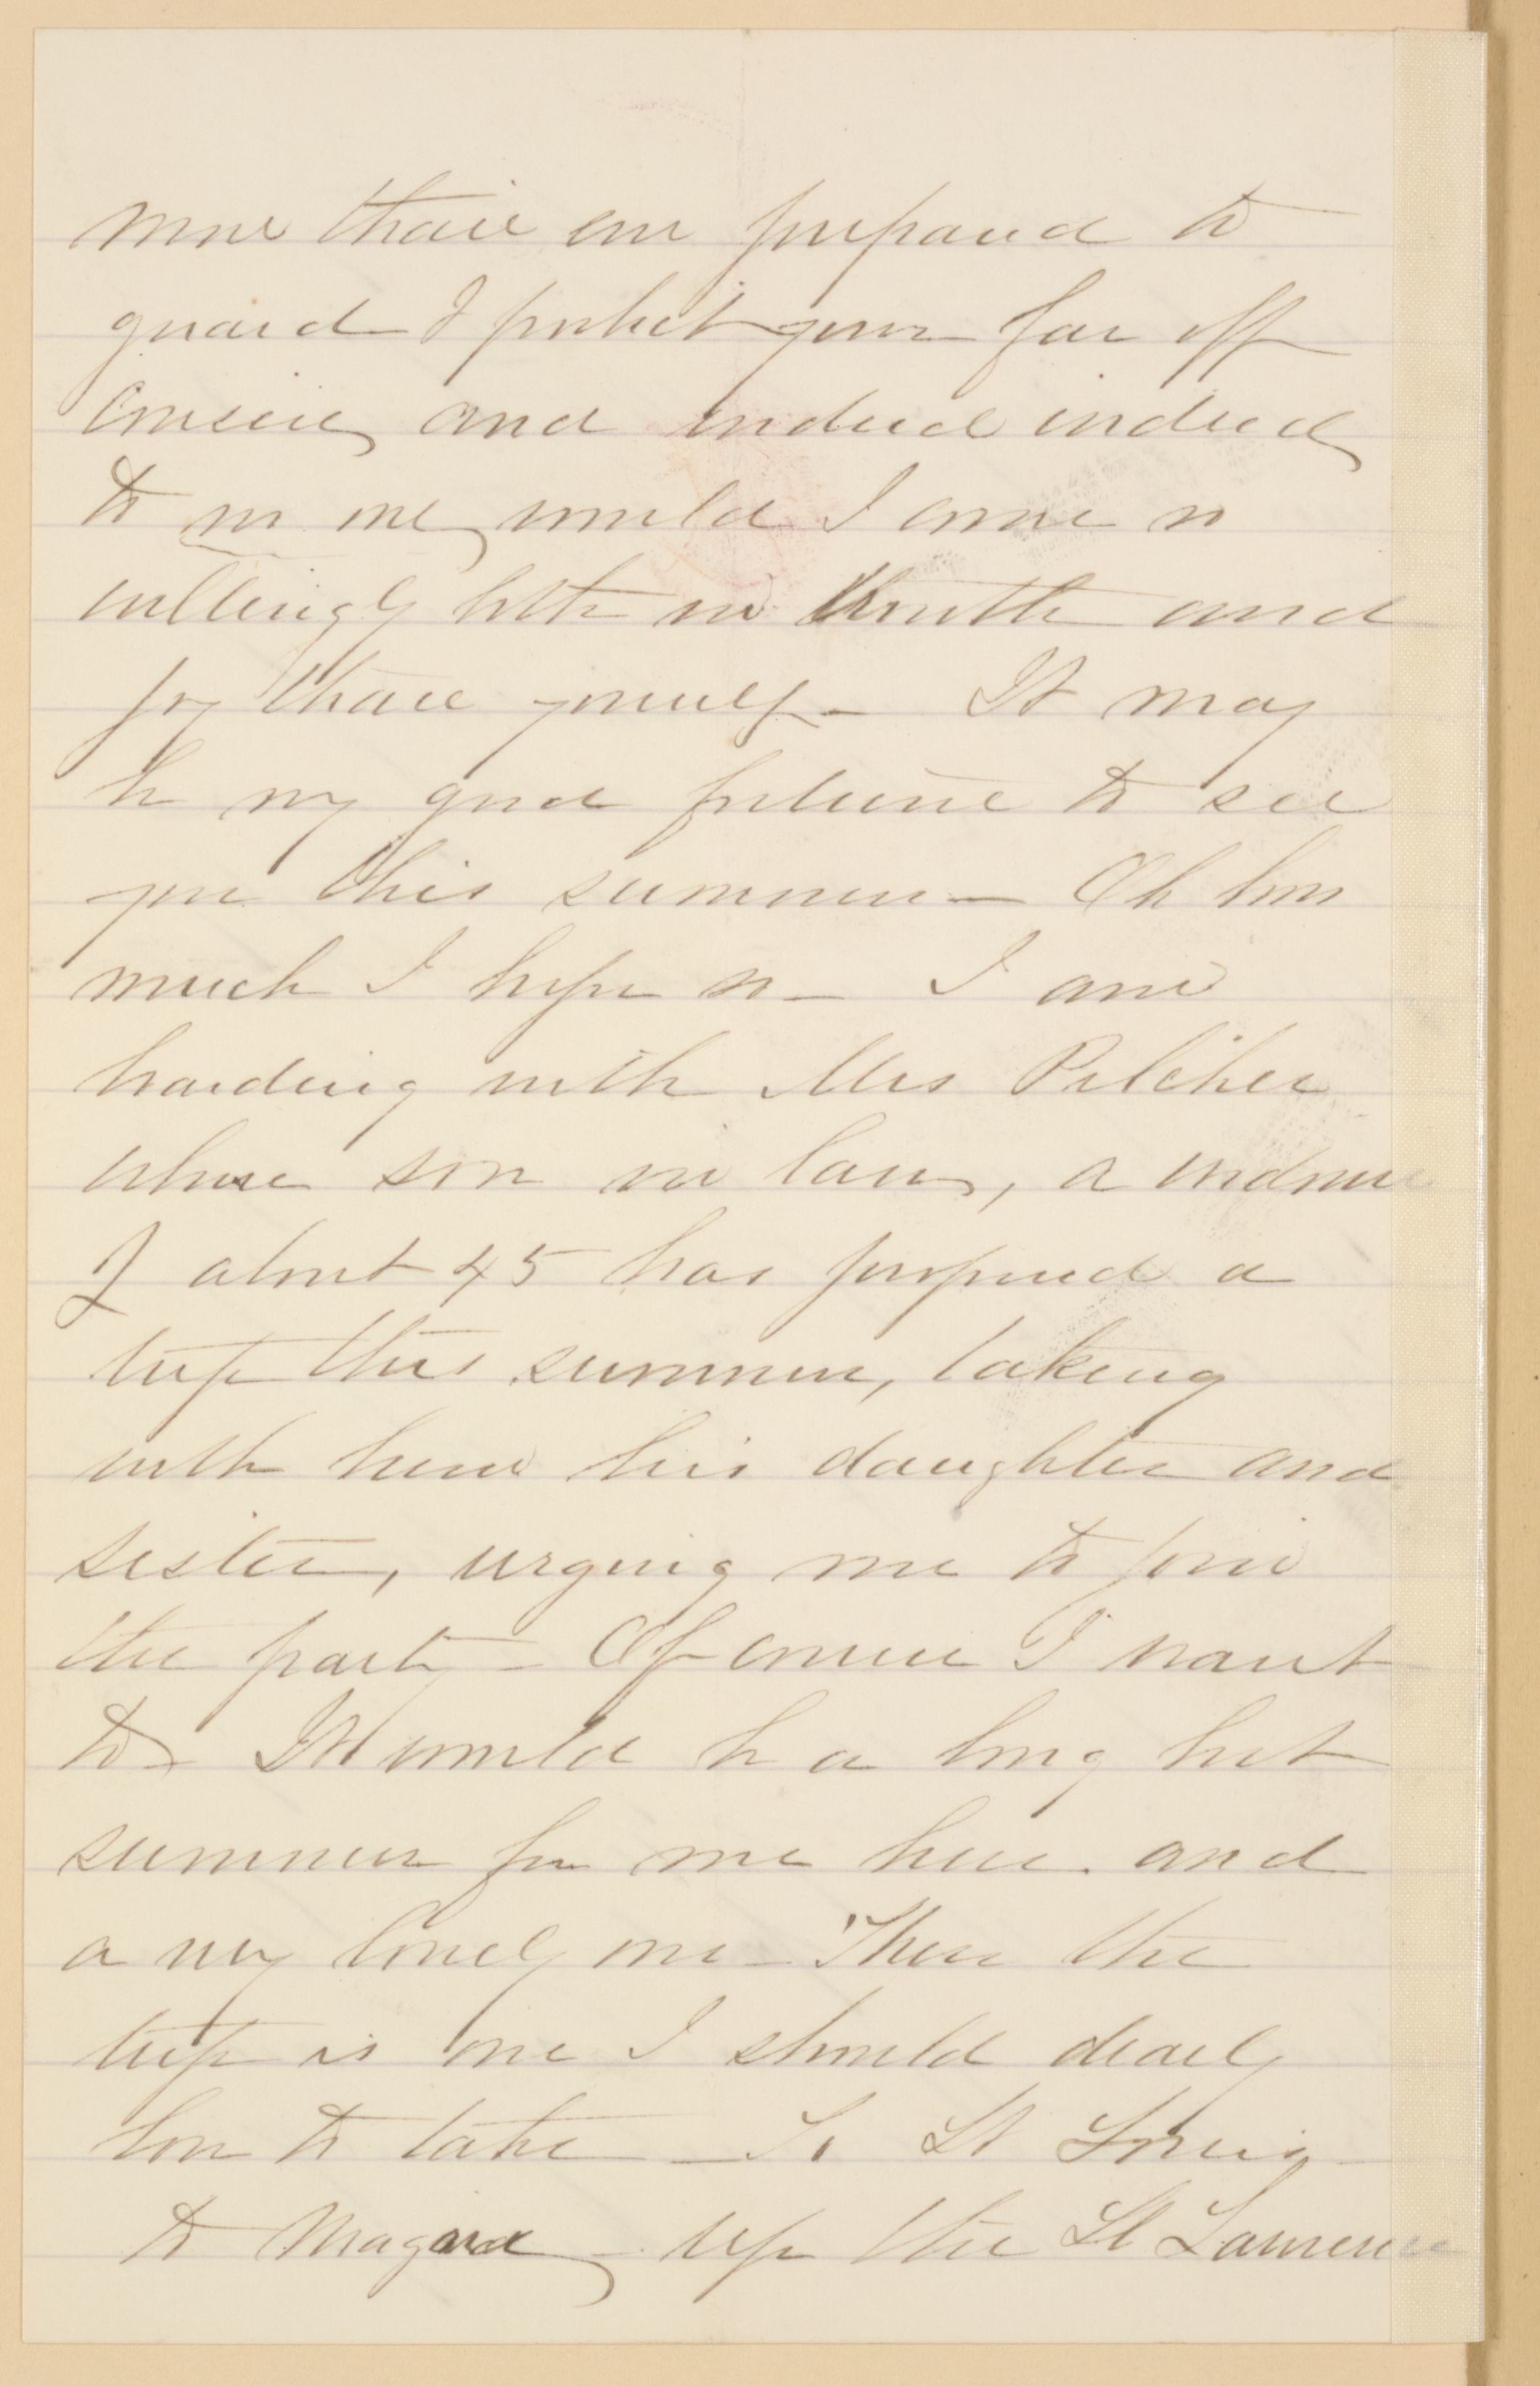 more than ever prepared to
guard & protect your far off
cousin, and indeed indeed
to no one, would I come so
willingly both in truth and
joy than yourself - It may
be my good fortune to see
you this summer - Oh how
much I hope so - I am
boarding with Mrs Pilcher
whose son in law, a widower
of about 45 has proposed a
trip this summer, taking
with him his daughter and
sister, urging me to join
the party - Of course I want
to - It would be a long hot
summer for me here and
a very lonely one - Then the
trip is one I should dearly
love to take - To St Louis -
to Niagara, - up the St Lawrence